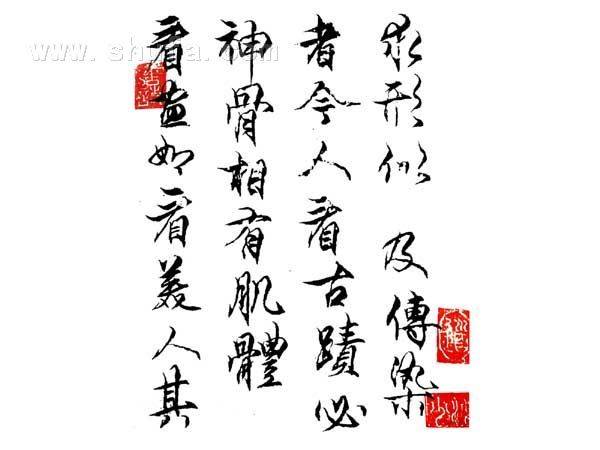 www.shufa.com
看畫如看美人其
神骨相有肌體
者今人看古蹟必
求形似 及傳染